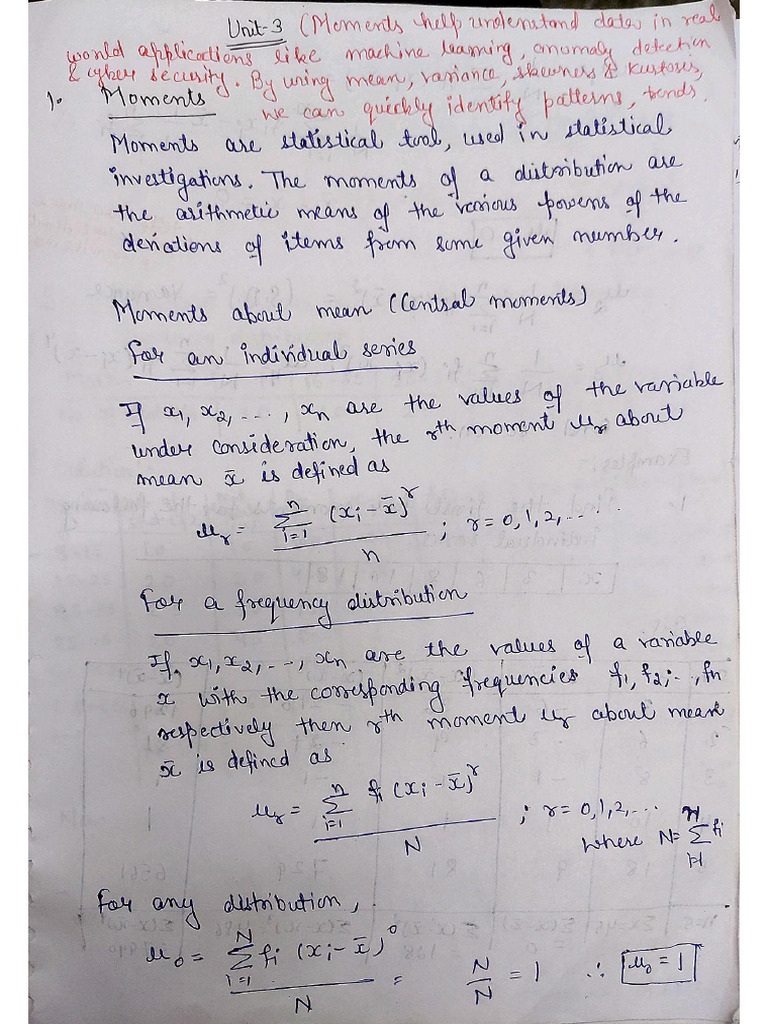 Unit-3 (Moments help understand data in real
world applications like machine learning, anomaly detection
& cyber security. By using mean, variance, skewness & kurtosis,
we can quickly identify patterns, trends.
1. Moments
Moments are statistical tool, used in statistical
investigations. The moments of a distribution are
the arithmetic means of the various powers of the
deviations of items from some given number.
Moments about mean (Central moments)
For an individual series
If x₁, x₂, ..., xn are the values of the variable
under consideration, the rth moment μr about
mean x̄ is defined as
μr = Σ_{i=1}^{n} (xi - x̄)^r / n ; r = 0, 1, 2, ...
For a frequency distribution
If, x₁, x₂, ..., xn are the values of a variable
x with the corresponding frequencies f₁, f₂, .., fn
respectively then rth moment μr about mean
x̄ is defined as
μr = Σ_{i=1}^{n} fi (xi - x̄)^r / N ; r = 0, 1, 2, ...
where N = Σ_{i=1}^{n} fi
For any distribution,
μ₀ = Σ_{i=1}^{N} fi (xi - x̄)^0 / N = N/N = 1 ∴ μ₀ = 1